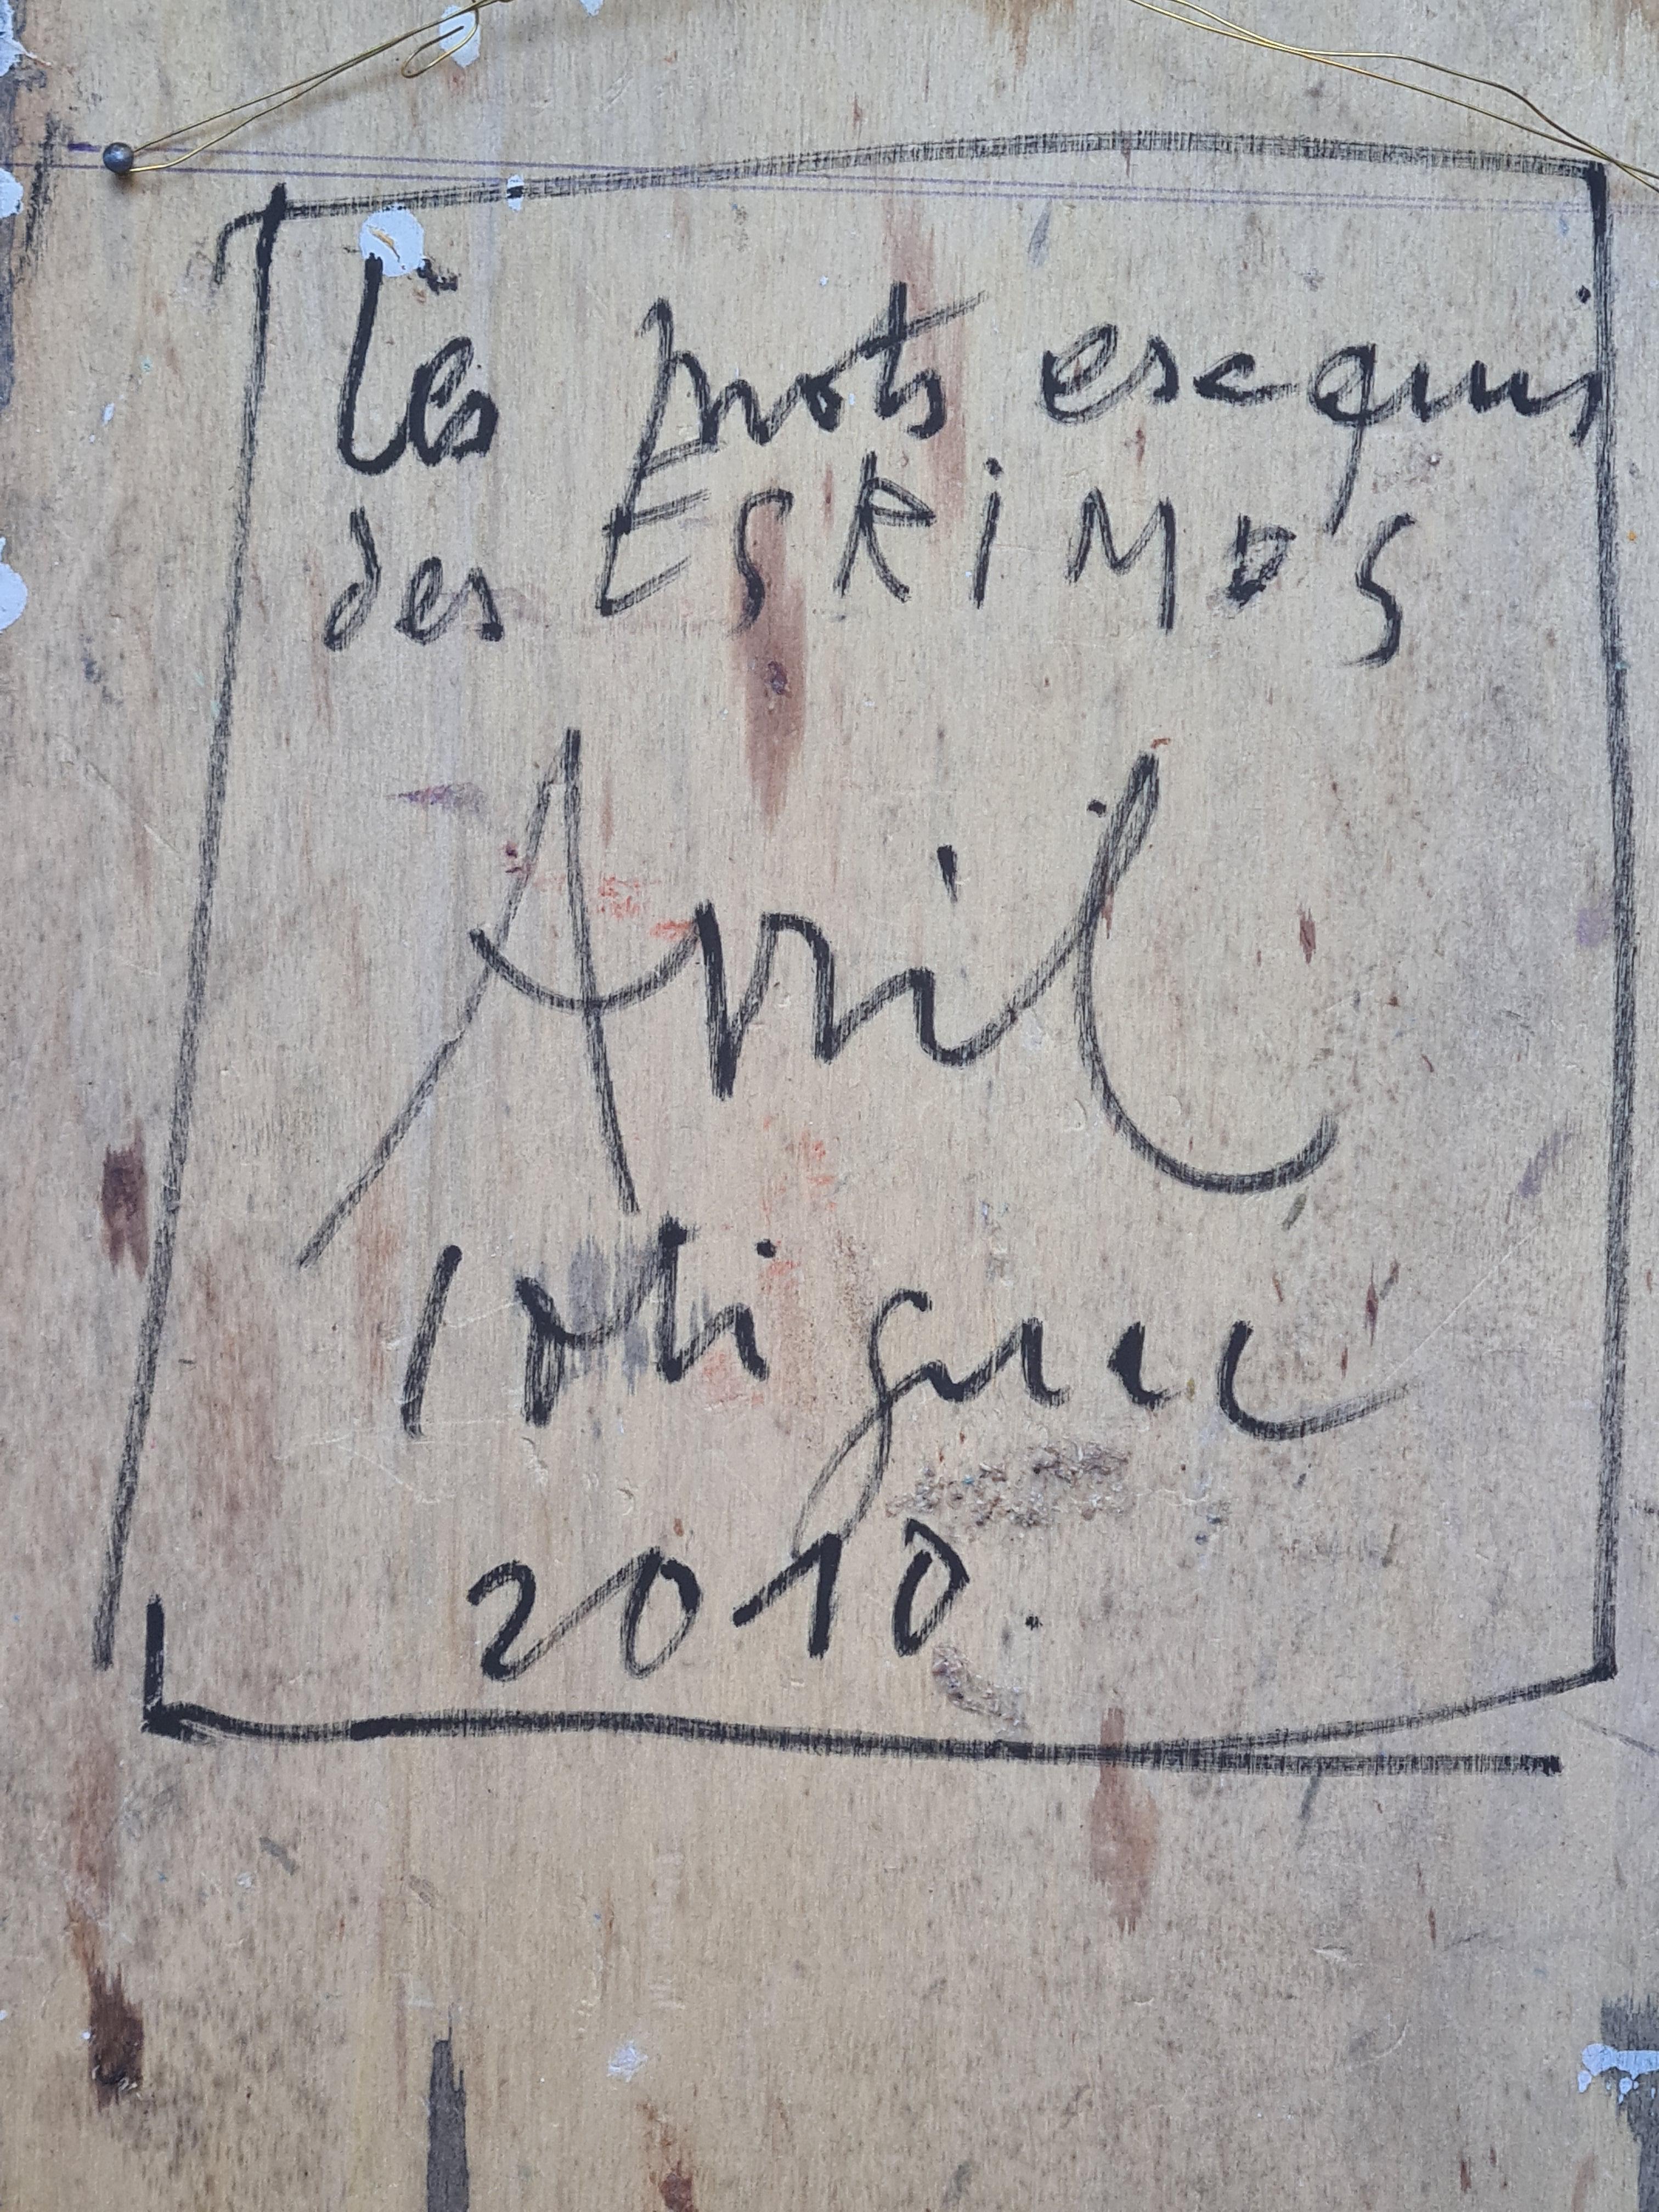 Les mots esquis
des ESKiMOS
Avril
2010.